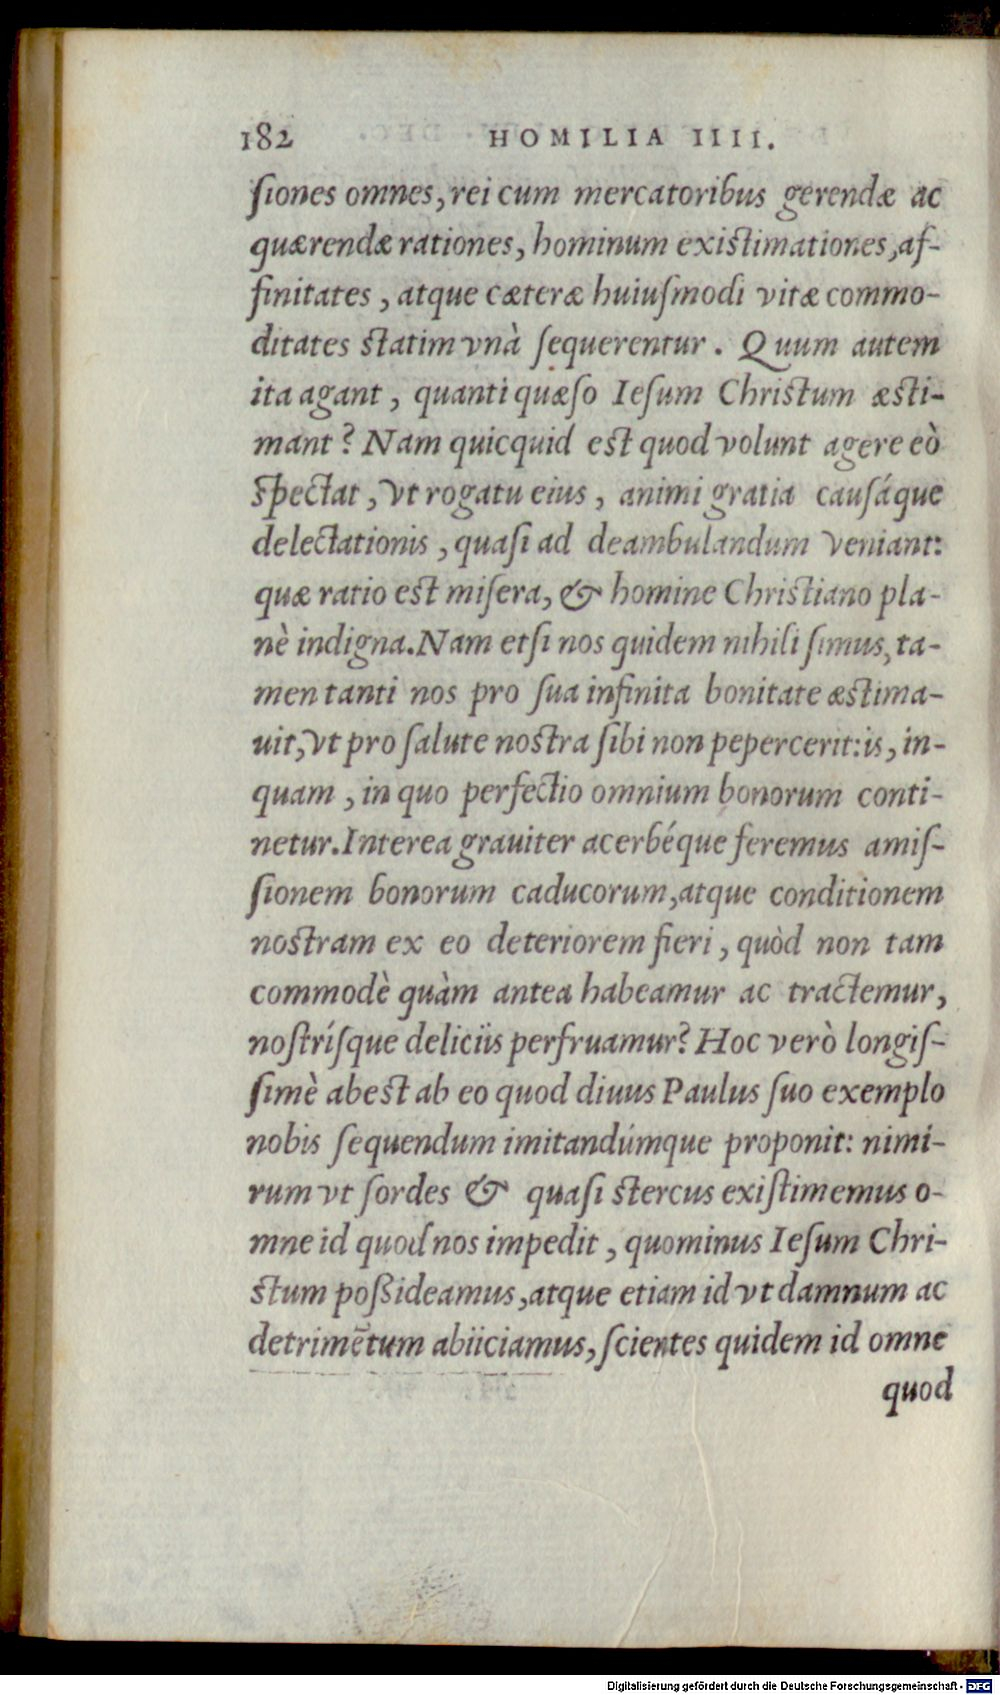 182 HOMILIA IIII.
ſiones omnes, rei cum mercatoribus gerendæ ac
quærendæ rationes, hominum existimationes, af-
finitates, atque cæteræ huiuſmodi vitæ commo-
ditates statim vnà ſequerentur. Quum autem
ita agant, quanti quæſo Ieſum Christum æsti-
mant? Nam quicquid est quod volunt agere eò
spectat, vt rogatu eius, animi gratia causáque
delectationis, quaſi ad deambulandum veniant:
quæ ratio est miſera, & homine Christiano pla-
nè indigna. Nam etſi nos quidem nihili ſimus, ta-
men tanti nos pro ſua infinita bonitate æstima-
uit, vt pro ſalute nostra ſibi non pepercerit: is, in-
quam, in quo perfectio omnium bonorum conti-
netur. Interea grauiter acerbéque feremus amiſ-
ſionem bonorum caducorum, atque conditionem
nostram ex eo deteriorem fieri, quòd non tam
commodè quàm antea habeamur ac tractemur,
noſtríſque deliciis perfruamur? Hoc verò longiſ-
ſimè abest ab eo quod diuus Paulus ſuo exemplo
nobis ſequendum imitandúmque proponit: nimi-
rum vt ſordes & quaſi stercus exiſtimemus o-
mne id quod nos impedit, quominus Ieſum Chri-
stum poßideamus, atque etiam id vt damnum ac
detrimētum abiiciamus, ſcientes quidem id omne
quod
Digitalisierung gefördert durch die Deutsche Forschungsgemeinschaft - DFG